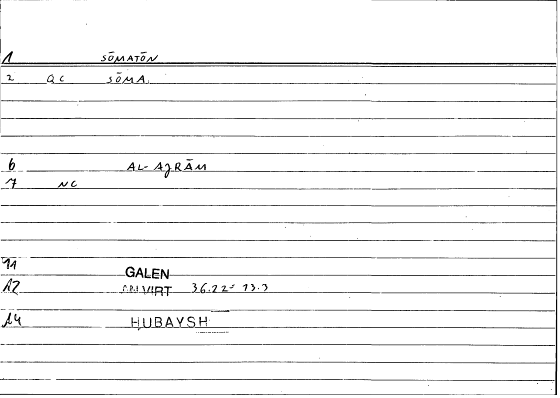 1 SŌMATŌN
2 QC SŌMA.
6 AL-AJRĀM
7 NC
11 GALEN
12 AN.VIRT 36.22 = 13.3
14 ḤUBAYSH